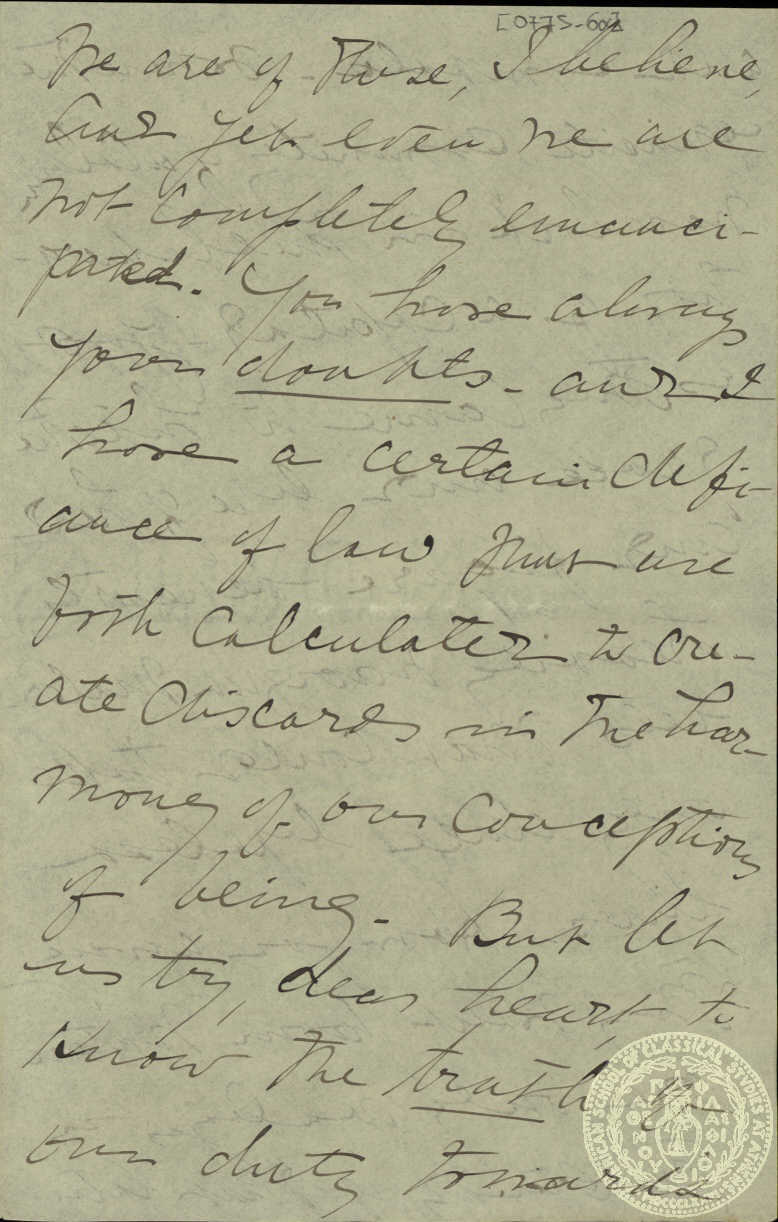 [0775-602]
We are of those, I believe,
And yet even we are
not completely emanci-
pated. You have always
your doubts - and I
have a certain defi-
ance of law that are
both calculated to cre-
ate discords in the har-
mony of our conceptions
of being. But let
us try, dear heart, to
know the truth of
our duty towards
AMERICAN SCHOOL OF CLASSICAL STUDIES AT ATHENS